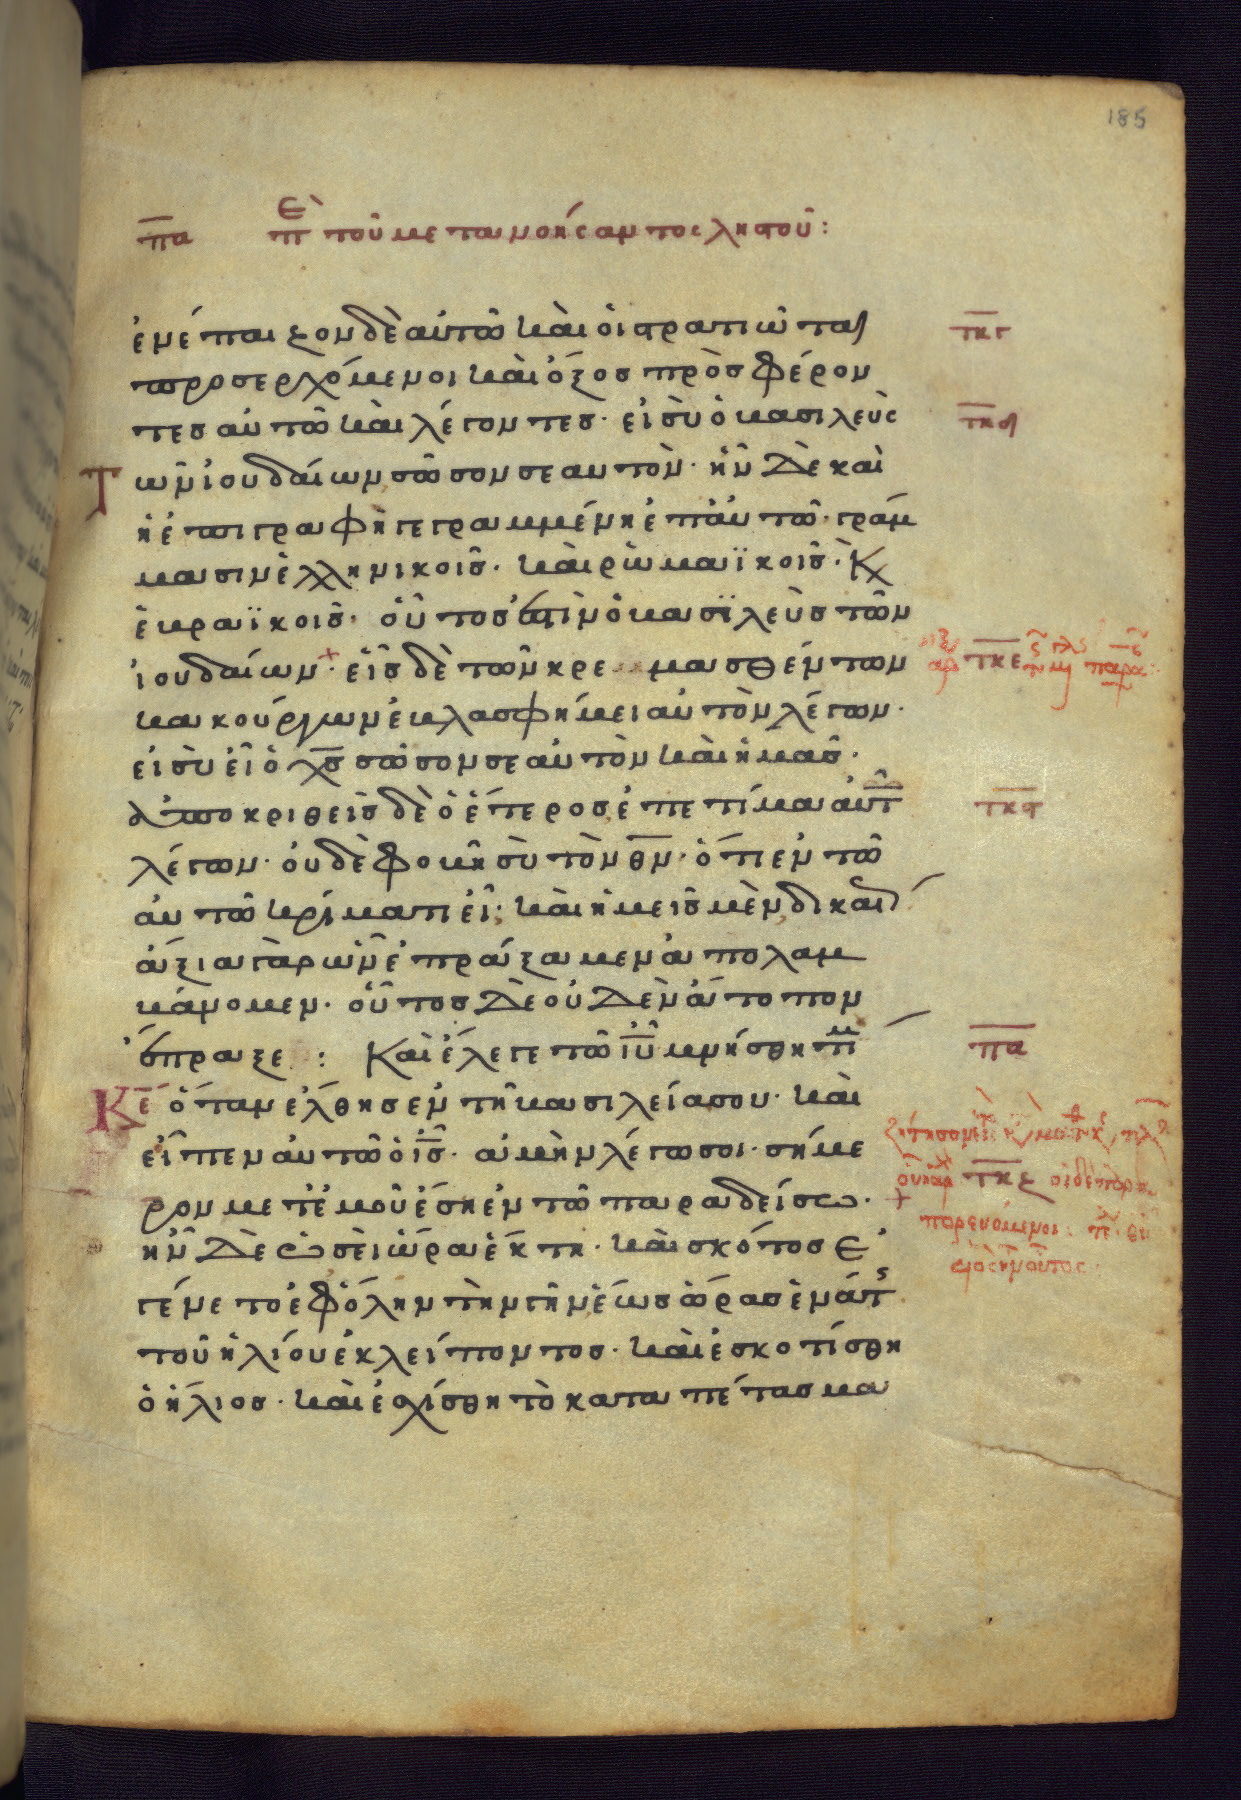 185
πα Περὶ τοῦ μετανοήσαντος ληστοῦ:
ἐνέπαιζον δὲ αὐτῶ καὶ οἱ στρατιῶται
τκγ
προσερχόμενοι καὶ ὄξος πρὸσφέρον
τες αὐτῶ καὶ λέγοντες· εἰ σὺ ὁ βασιλεὺς
τκδ
τῶν ἰουδαίων σῶσον σεαυτὸν· ἦν δὲ καὶ
ἡ ἐπιγραφὴ γεγραμμένη ἐπ' αὐτῶ· γράμ
μασιν ἑλληνικοῖς· καὶ ῥωμαϊκοῖς· κ
ἑβραϊκοῖς· οὗτος ἐστὶν ὁ βασϊλεὺς τῶν
ἰουδαίων· εἷς δὲ τῶν κρεμασθέντων
τκε
κακούργων ἐβλασφήμει αὐτὸν λέγων·
εἰ σὺ εἶ ὁ χς σῶσον σεαυτὸν καὶ ἡμᾶς·
ἀποκριθεὶς δὲ ὁ ἕτερος ἐπετίμα αὐτ
τκς
λέγων· οὐδὲ φοβῆ σὺ τὸν θν· ὅτι ἐν τῶ
αὐτῶ κρίματι εἶ· καὶ ἡμεῖς μὲν δικαί
ἄξια γὰρ ὧν ἐπράξαμεν ἀπολαμ
βάνομεν· οὗτος δὲ οὐδὲν ἄτοπον
ἔπραξε: Καὶ ἔλεγε τῶ ιυ μνήσθητι μ
πα
Κε ὅταν ἔλθης ἐν τῆ βασιλεία σου· καὶ
εἶπεν αὐτῶ ὁ ις· ἀμὴν λέγω σοι· σήμε
ρον μετ' ἐμοῦ ἔση ἐν τῶ παραδείσω·
τκζ
ἦν δὲ ὡσεὶ ὥρα ἕκτη· καὶ σκότος ἐ
γένετο ἐφ' ὅλην τὴν γῆν ἕως ὥρας ἐνάτ
τοῦ ἡλίου ἐκλείποντος· καὶ ἐσκοτίσθη
ὁ ἥλιος· καὶ ἐσχίσθη τὸ καταπέτασμα